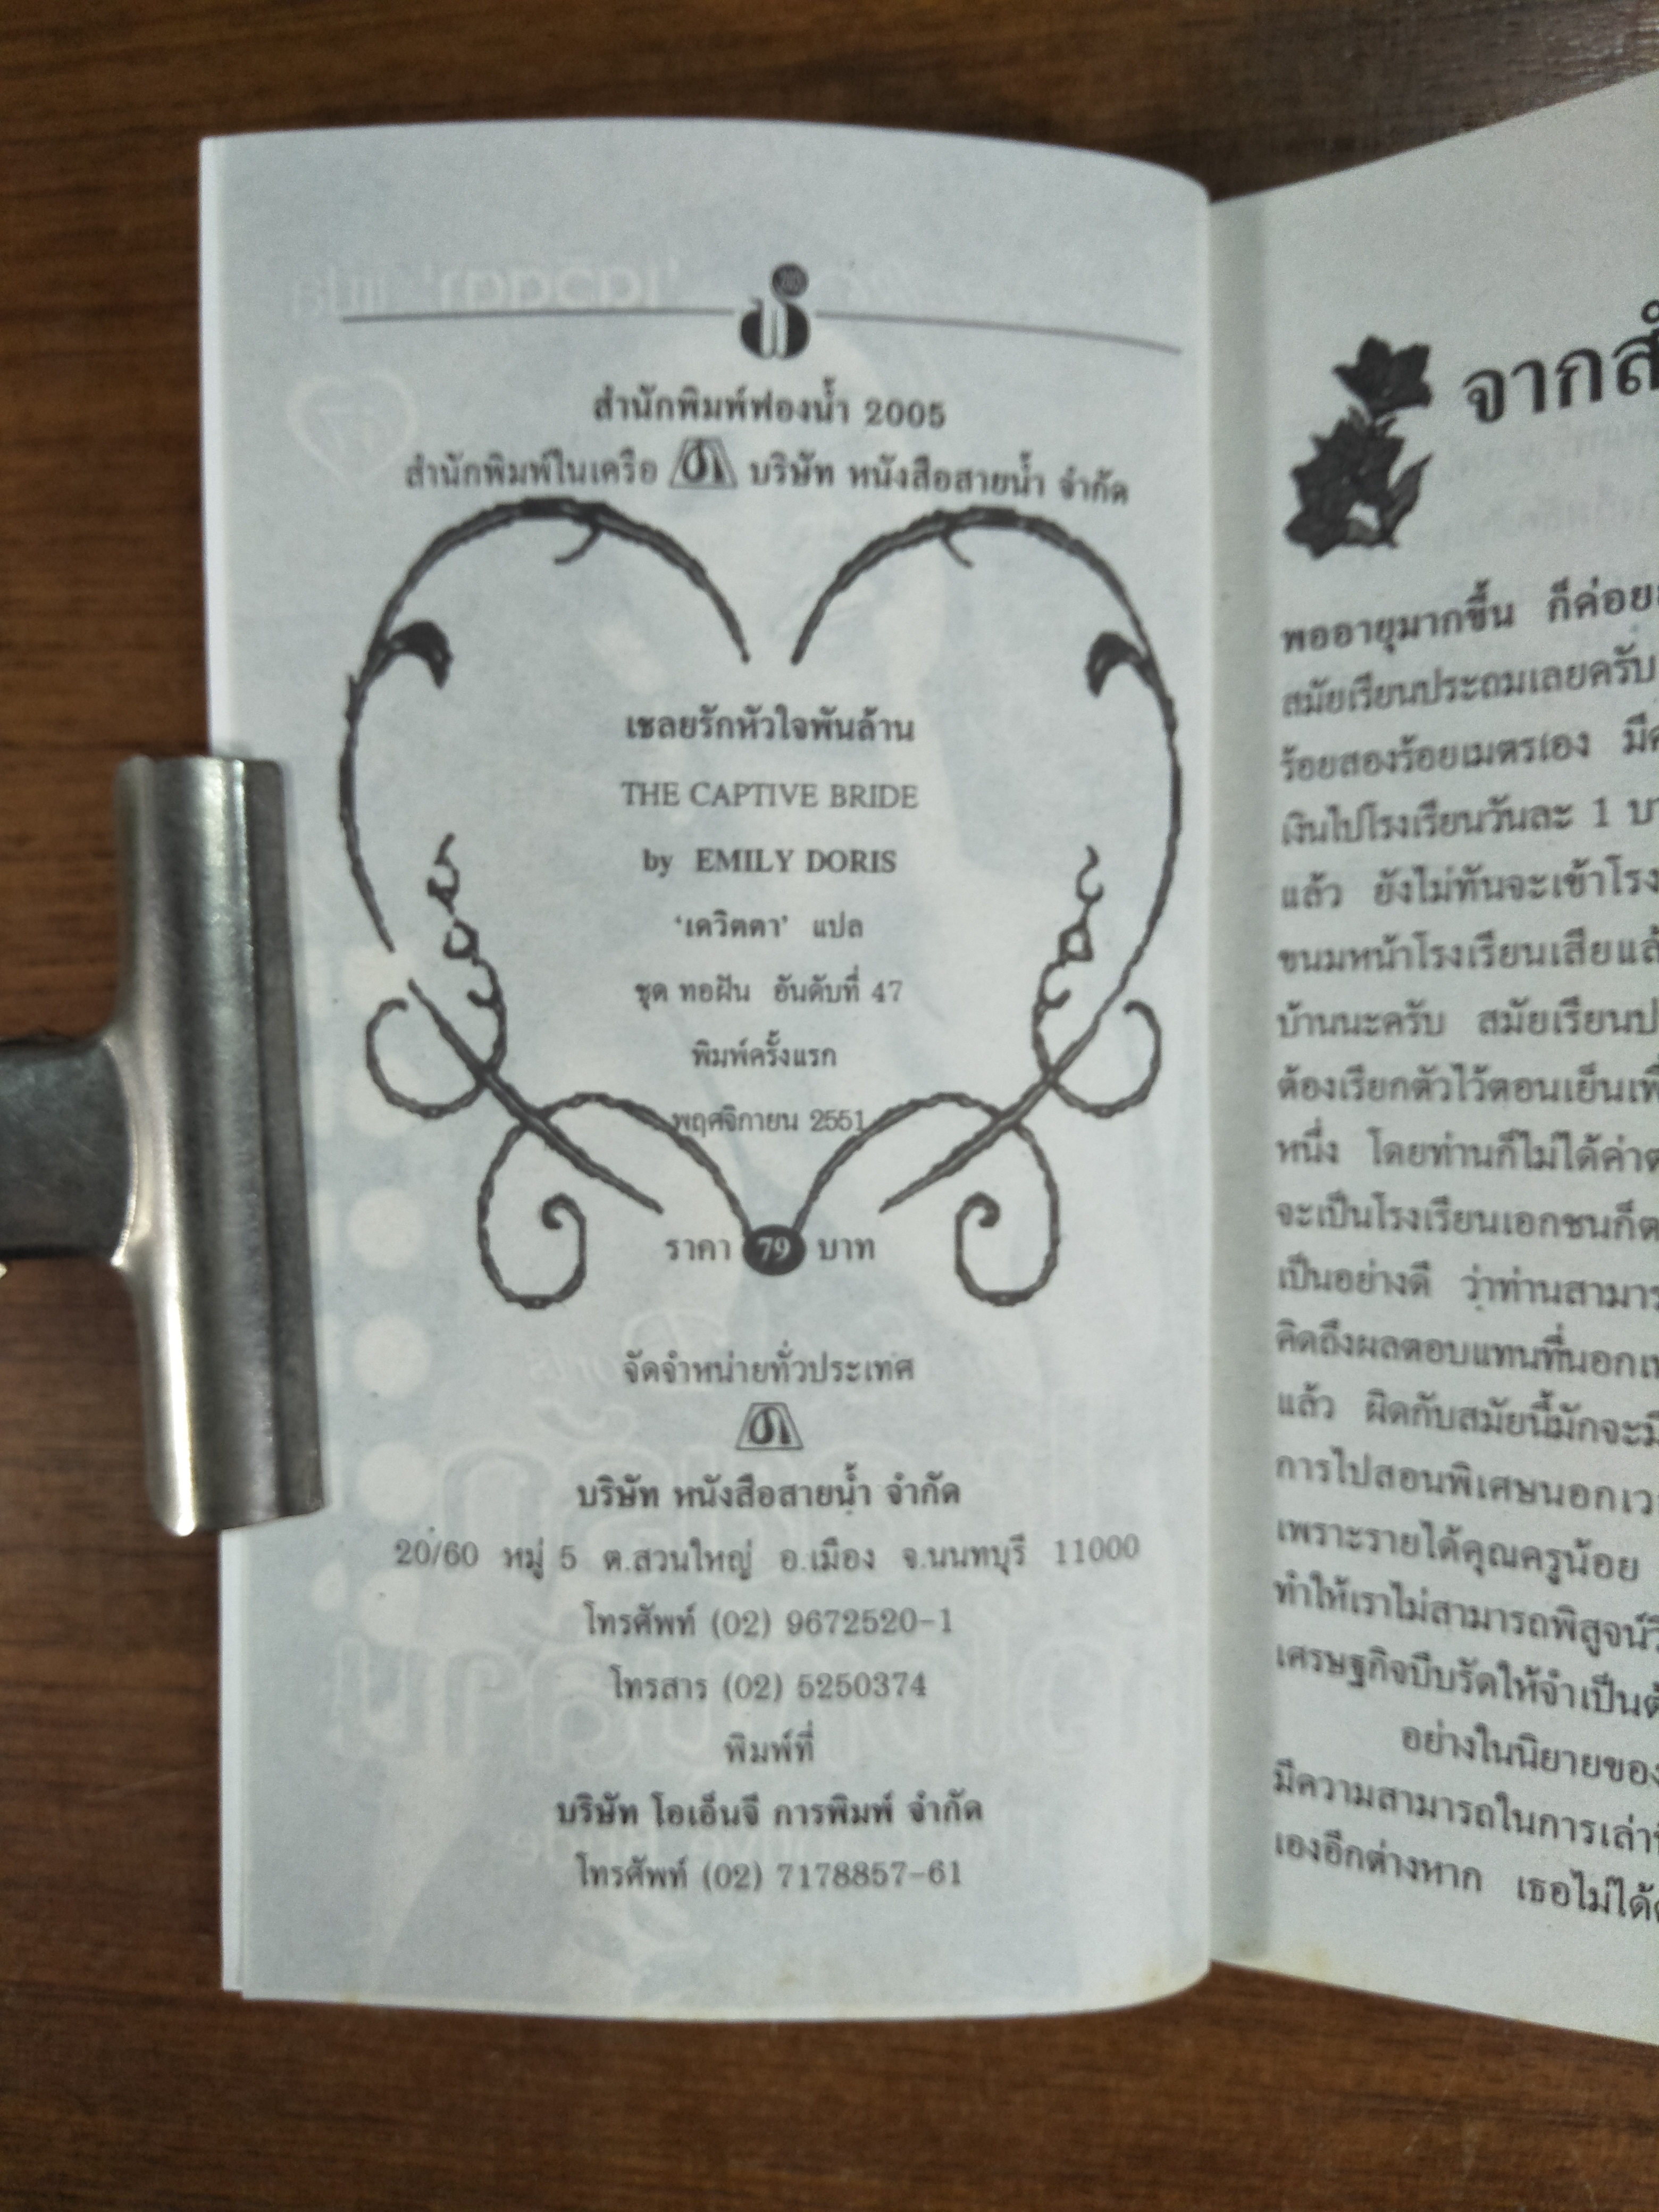 สำนักพิมพ์ฟองน้ำ 2005
สำนักพิมพ์ในเครือ บริษัท หนังสือสายน้ำ จำกัด
เชลยรักหัวใจพันล้าน
THE CAPTIVE BRIDE
by EMILY DORIS
‘เดวิตตา’ แปล
ชุด ทอฝัน อันดับที่ 47
พิมพ์ครั้งแรก
พฤศจิกายน 2551
ราคา 79 บาท
จัดจำหน่ายทั่วประเทศ
บริษัท หนังสือสายน้ำ จำกัด
20/60 หมู่ 5 ต.สวนใหญ่ อ.เมือง จ.นนทบุรี 11000
โทรศัพท์ (02) 9672520-1
โทรสาร (02) 5250374
พิมพ์ที่
บริษัท โอเอ็นจี การพิมพ์ จำกัด
โทรศัพท์ (02) 7178857-61
จาก
พออายุมากขึ้น ก็ค่อย
สมัยเรียนประถมเลยครับ
ร้อยสองร้อยเมตรเอง
เงินไปโรงเรียนวันละ 1
แล้ว ยังไม่ทันจะเข้าโรง
ขนมหน้าโรงเรียนเสียแล้
บ้านนะครับ สมัยเรียนป
ต้องเรียกตัวไว้ตอนเย็น
หนึ่ง โดยท่านก็ไม่ได้ค่า
จะเป็นโรงเรียนเอกชนก็
เป็นอย่างดี ว่าท่านสามาร
คิดถึงผลตอบแทนที่นอก
แล้ว ผิดกับสมัยนี้มักจะ
การไปสอนพิเศษนอกเว
เพราะรายได้คุณครูน้อย
ทำให้เราไม่สามารถพิสูจน์
เศรษฐกิจบีบรัดให้จำเป็น
อย่างในนิยายของ
มีความสามารถในการเล่า
เองอีกต่างหาก เธอไม่ได้